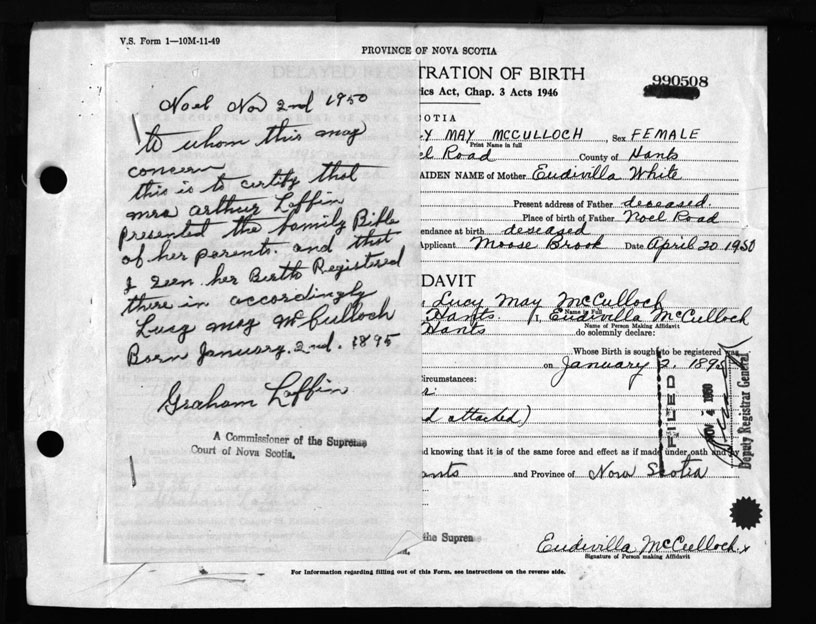 V.S. Form 1—10M-11-49
PROVINCE OF NOVA SCOTIA
DELAYED REGISTRATION OF BIRTH
ics Act, Chap. 3 Acts 1946
990508
Noel Nov 2nd 1950
to whom this may
concern
this is to certify that
mrs arthur Laffin
presented the family Bible
of her parents. and that
I seen her Birth Registered
there in accordingly
Lucy may McCulloch
Born January. 2nd. 1895
Graham Laffin
A Commissioner of the Supreme
Court of Nova Scotia.
SCOTIA
CY MAY MCCULLOCH, Sex FEMALE
Print Name in full
el Road County of Hants
MAIDEN NAME of Mother Eudivilla White
Present address of Father deseased.
Place of birth of Father Noel Road
endance at birth deseased
Applicant Moose Brook Date April 20 1950
IDAVIT
Lucy May McCulloch
Name in Full
Hants. I, Eudivilla McCulloch
Name of Person Making Affidavit
Hants do solemnly declare:
Whose Birth is sought to be registered was
on January 2, 1895
circumstances:
d attached)
d knowing that it is of the same force and effect as if made under oath and by
ants and Province of Nova Scotia
FILED
NOV 4 1950
Deputy Registrar General
the Suprem
Eudivilla McCulloch x
Signature of Person making Affidavit
For Information regarding filling out of this Form, see instructions on the reverse side.